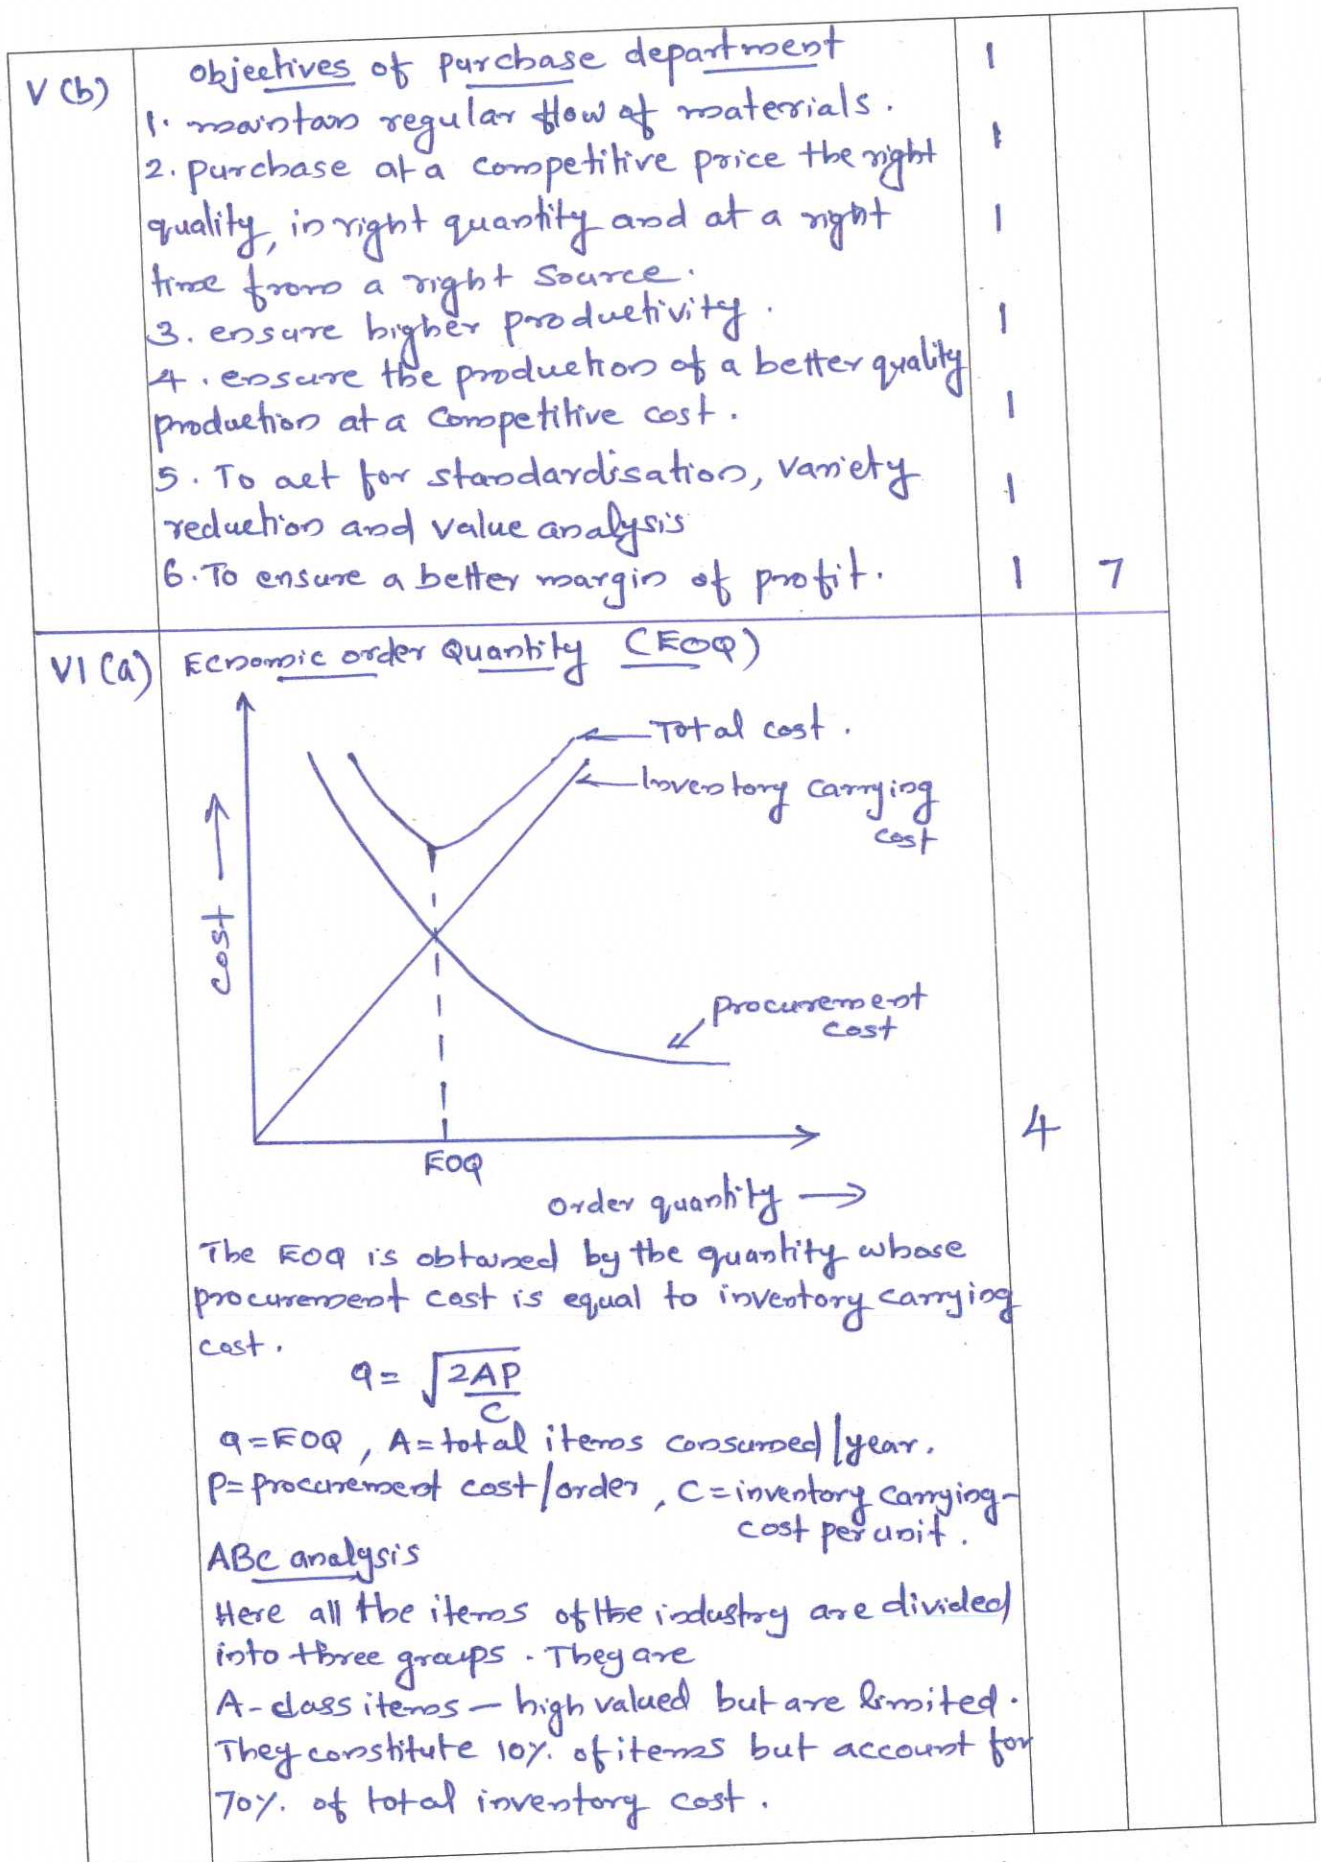 V (b)
Objectives of purchase department
1
1. maintain regular flow of materials.
1
2. purchase at a competitive price the right
quality, in right quantity and at a right
1
time from a right source.
3. ensure higher productivity.
1
4. ensure the production of a better quality
production at a competitive cost.
1
5. To act for standardisation, variety
1
reduction and value analysis
6. To ensure a better margin of profit.
1
7
VI (a)
Ecnomic order Quantity (EOQ)
Total cost.
Inventory carrying
cost
cost
procurement
cost
4
EOQ
order quantity
The EOQ is obtained by the quantity whose
procurement cost is equal to inventory carrying
cost.
q = √2AP/C
q = EOQ, A = total items consumed/year.
P = procurement cost/order, C = inventory carrying-
cost per unit.
ABC analysis
Here all the items of the industry are divided
into three groups. They are
A-class items – high valued but are limited.
They constitute 10% of items but account for
70% of total inventory cost.